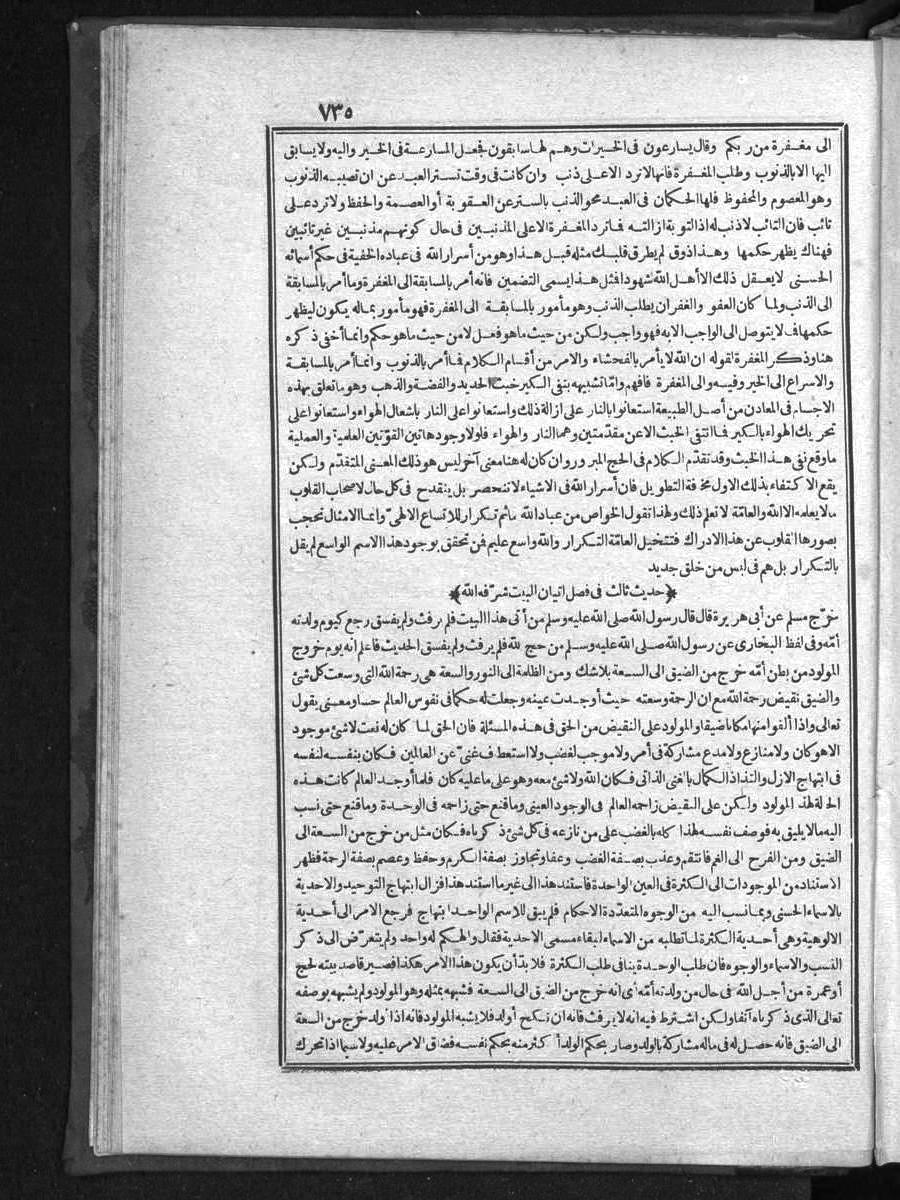 ٧٣٥
الى مغفرة من ربكم وقال يسارعون فى الخيرات وهم لها سابقون فجعل المسارعة فى الخير واليه ولا يسابق
اليها الا بالذنوب وطلب المغفرة فانها لا ترد الا على ذنب وان كانت فى وقت تستر العبد عن ان تصيبه الذنوب
وهو المعصوم والمحفوظ فلها الحكمان فى العبد محو الذنب بالستر عن العقوبة أو العصمة والحفظ ولا ترد على
تائب فان التائب لا ذنب له اذ التوبة ازالته فما ترد المغفرة الا على المذنبين فى حال كونهم مذنبين غير تائبين
فهناك يظهر حكمها وهذا ذوق لم يطرق قلبك مثله قبل هذا وهو من أسرار الله فى عباده الخفية فى حكم أسمائه
الحسنى لا يعقل ذلك الا أهل الله شهودا فمثل هذا يسمى التضمين فانه أمر بالمسابقة الى المغفرة وما أمر بالمسابقة
الى الذنب ولما كان العفو والغفران يطلب الذنب وهو مأمور بالمسابقة الى المغفرة فهو مأمور بماله يكون ليظهر
حكمها فما لا يتوصل الى الواجب الا به فهو واجب ولكن من حيث ما هو فعل لا من حيث ما هو حكم وانما أخفى ذكره
هنا وذكر المغفرة لقوله ان الله لا يأمر بالفحشاء والامر من أقسام الكلام فما أمر بالذنوب وانما أمر بالمسابقة
والاسراع الى الخير وفيه والى المغفرة فافهم وأما تشبيهه بنفى الكير خبث الحديد والفضة والذهب وهو ما تعلق بهذه
الاجسام فى المعادن من أصل الطبيعة استعانوا بالنار على ازالة ذلك واستعانوا على النار باشعال الهواء واستعانوا على
تحريك الهواء بالكير فما انتفى الخبث الا عن مقدمتين وهما النار والهواء فلولا وجود هاتين القوتين العلمية والعملية
ما وقع نفى هذا الخبث وقد تقدم الكلام فى الحج المبرور وان كان له هنا معنى آخر ليس هو ذلك المعنى المتقدم ولكن
يقع الاكتفاء بذلك الاول مخافة التطويل فان أسرار الله فى الاشياء لا تنحصر بل ينقدح فى كل حال لاصحاب القلوب
ما لا يعلمه الا الله والعامّة لا تعلم ذلك ولهذا تقول الخواص من عباد الله ما ثم تكرار للاتساع الالهى وانما الامثال تحجب
بصورها القلوب عن هذا الادراك فتتخيل العامّة التكرار والله واسع عليم فمن تحقق بوجود هذا الاسم الواسع لم يقل
بالتكرار بل هم فى لبس من خلق جديد
﴿حديث ثالث فى فضل اتيان البيت شرّفه الله﴾
خرّج مسلم عن أبى هريرة قال قال رسول الله صلى الله عليه وسلم من أتى هذا البيت فلم يرفث ولم يفسق رجع كيوم ولدته
أمّه وفى لفظ البخارى عن رسول الله صلى الله عليه وسلم من حج لله فلم يرفث ولم يفسق الحديث فاعلم انه يوم خروج
المولود من بطن أمّه خرج من الضيق الى السعة بلا شك ومن الظلمة الى النور والسعة هى رحمة الله التى وسعت كل شئ
والضيق نقيض رحمة الله مع ان الرحمة وسعته حيث أوجدت عينه وجعلت له حكما فى نفوس العالم حسا ومعنى يقول
تعالى واذا ألقوا منها مكانا ضيقا والمولود على النقيض من الحق فى هذه المسئلة فان الحق لما كان له نعت لا شئ موجود
الا هو كان ولا منازع ولا مدع مشاركة فى أمر ولا موجب لغضب ولا استعطاف غنىّ عن العالمين فكان بنفسه لنفسه
فى ابتهاج الازل والتذاذ الكمال بالغنى الذاتى فكان الله ولا شئ معه وهو على ما عليه كان فلما أوجد العالم كانت هذه
الحالة لهذا المولود ولكن على النقيض زاحمه العالم فى الوجود العينى وما قنع حتى زاحمه فى الوحدة وما قنع حتى نسب
اليه ما لا يليق به فوصف نفسه لهذا كله بالغضب على من نازعه فى كل شئ ذكرناه فكان مثل من خرج من السعة الى
الضيق ومن الفرح الى الغم فانتقم وعذب بصفة الغضب وعفا وتجاوز بصفة الكرم وحفظ وعصم بصفة الرحمة فظهر
الاستناد من الموجودات الى الكثرة فى العين الواحدة فاستند هذا الى غير ما استند هذا فزال ابتهاج التوحيد والاحدية
بالاسماء الحسنى وبما نسب اليه من الوجوه المتعدّدة الاحكام فلم يبق للاسم الواحد ابتهاج فرجع الامر الى أحدية
الالوهية وهى أحدية الكثرة لما تطلبه من الاسماء لبقاء مسمى الاحدية فقال والهكم اله واحد ولم يتعرّض الى ذكر
النسب والاسماء والوجوه فان طلب الوحدة ينافى طلب الكثرة فلا بدّ أن يكون هذا الامر هكذا فصير قاصد بيته لحج
أو عمرة من أجل الله فى حال من ولدته أمّه أى انه خرج من الضيق الى السعة فشبهه بمثله وهو المولود ولم يشبهه بوصفه
تعالى الذى ذكرناه آنفا ولكن اشترط فيه انه لا يرفث فانه ان نكح أولد فلا يشبه المولود فانه اذا ولد خرج من السعة
الى الضيق فانه حصل له فى ماله مشاركة بالولد وصار بحكم الولد أكثر منه بحكم نفسه فضاق الامر عليه ولا سيما اذا تحرك